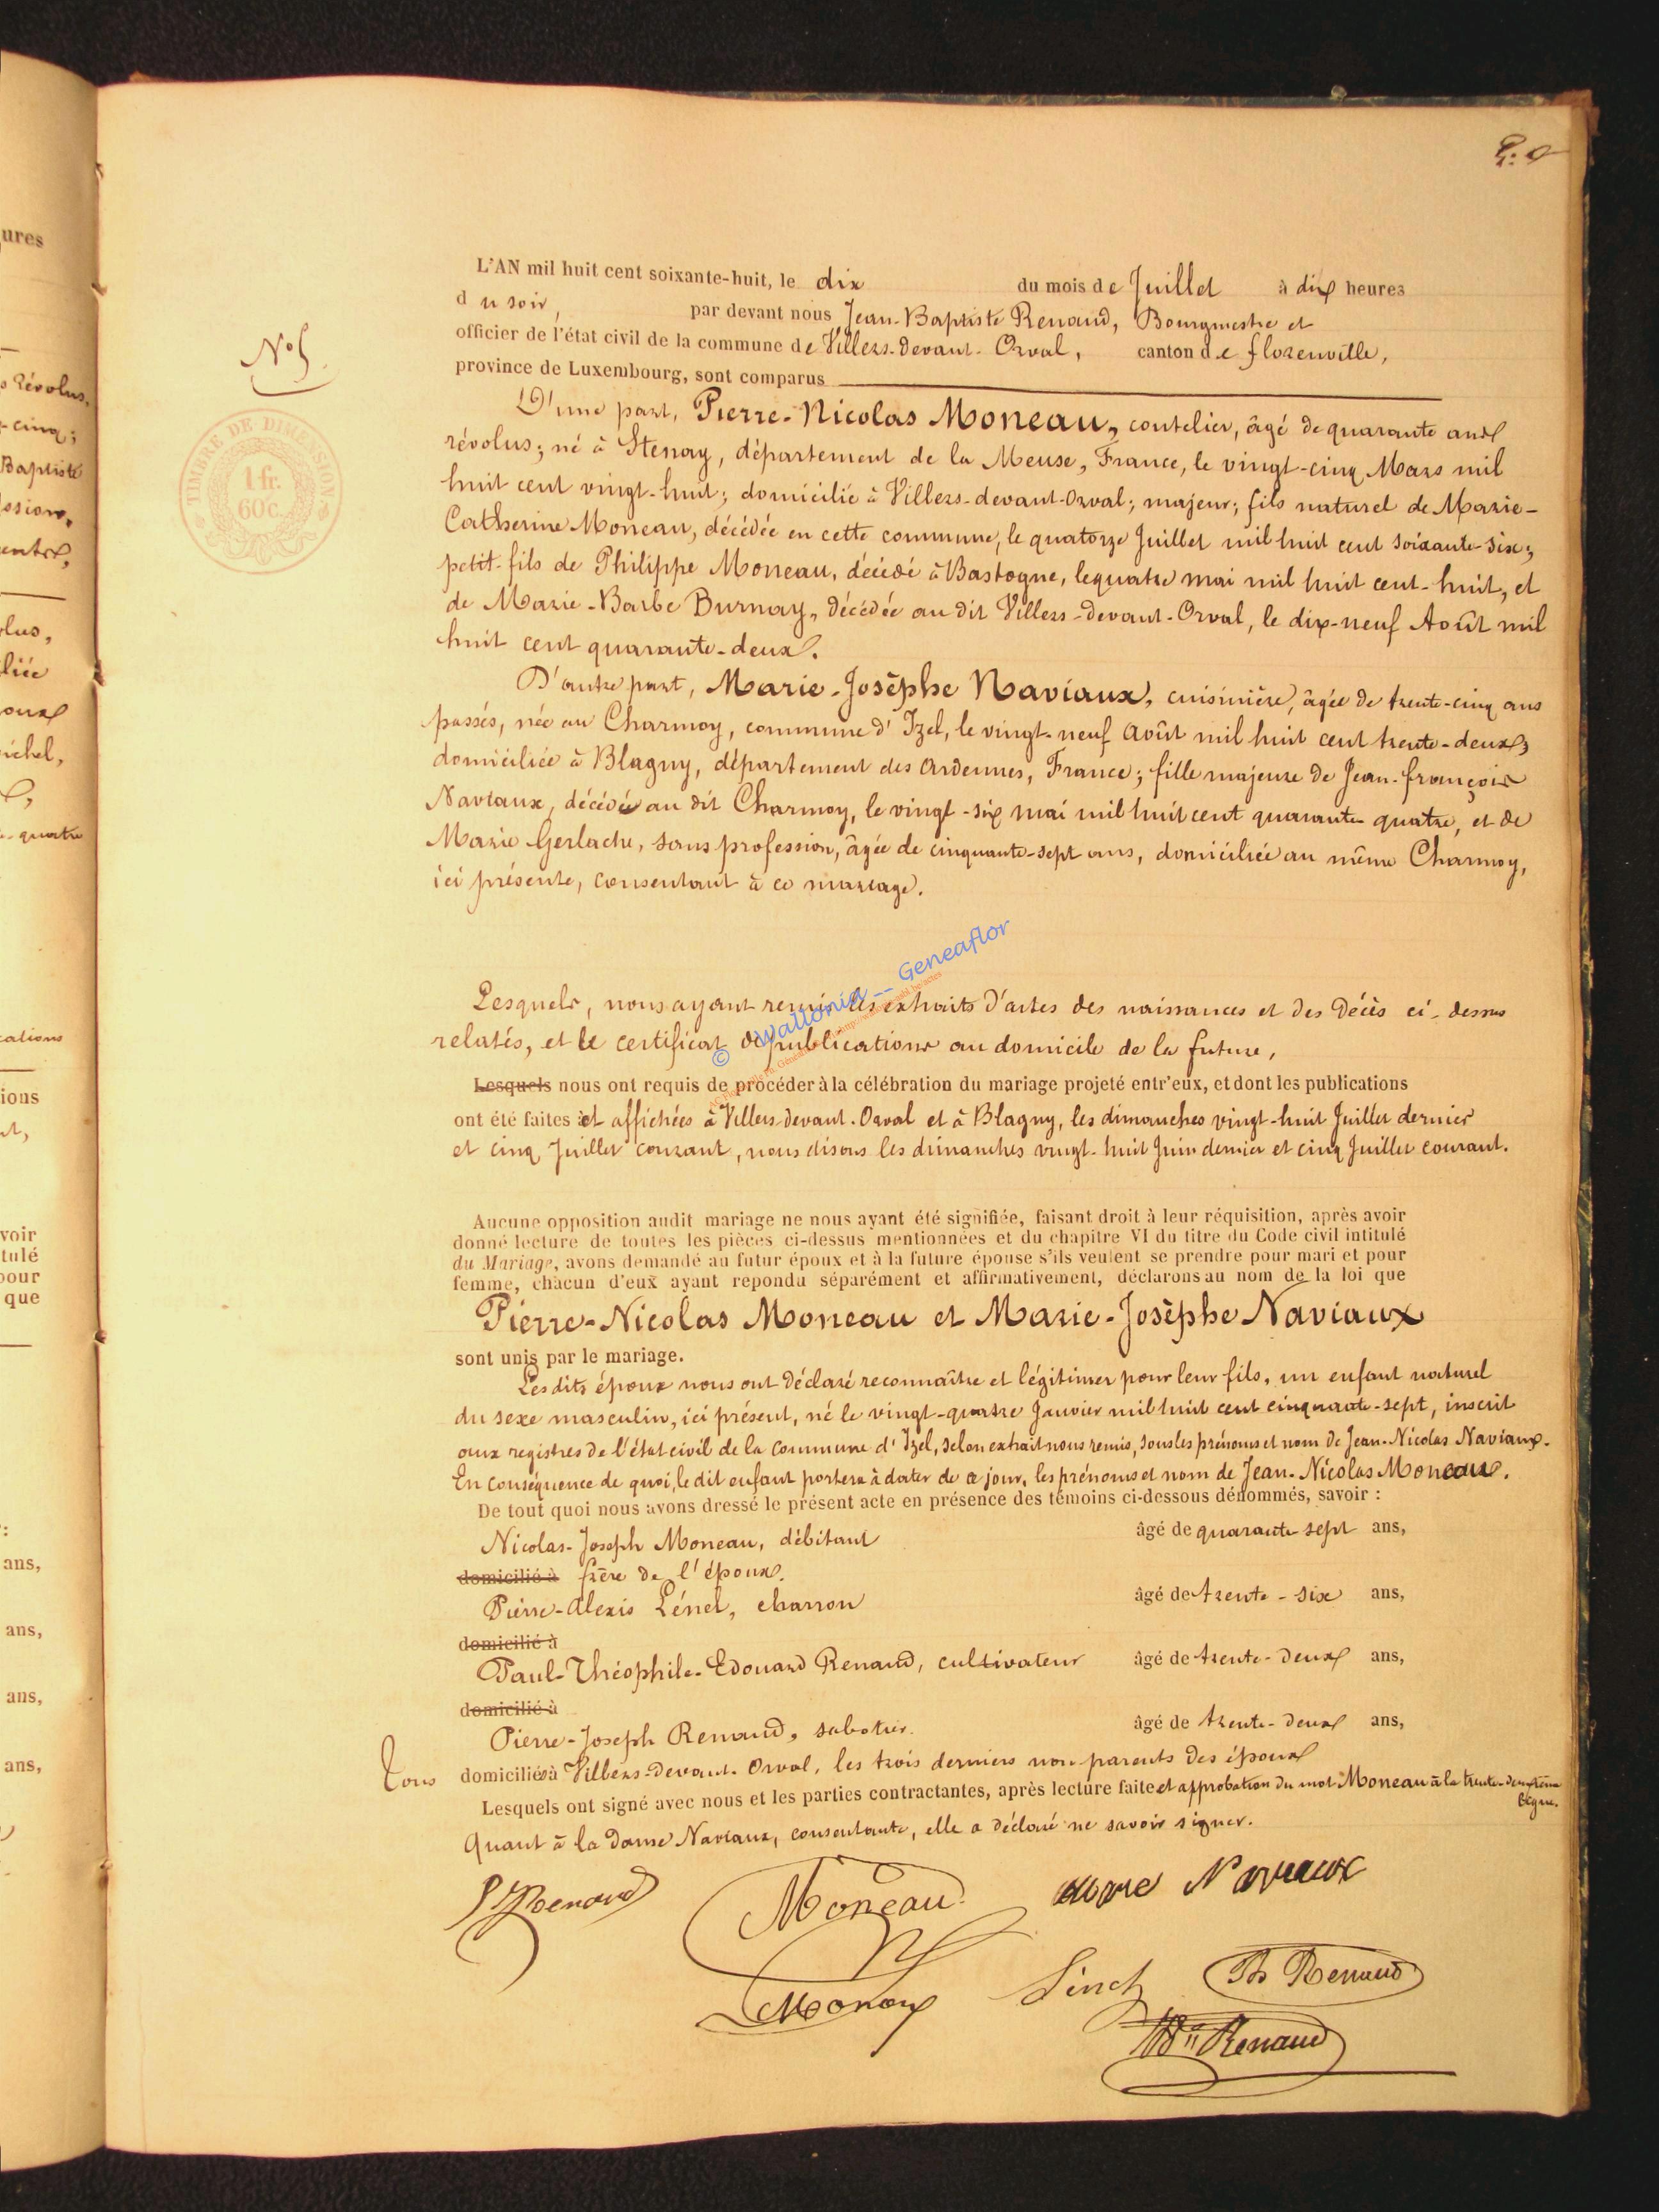 ures
L'AN mil huit cent soixante-huit, le dix du mois de Juillet à dix heures
du soir, par devant nous Jean-Baptiste Renaud, Bourgmestre et
officier de l'état civil de la commune de Villers-devant-Orval, canton de florenville,
province de Luxembourg, sont comparus
N° 5
TIMBRE DE DIMENSION
1 fr.
60 c.
D'une part, Pierre-Nicolas Moneau, coutelier, âgé de quarante ans
révolus; né à Stenay, département de la Meuse, France, le vingt-cinq Mars mil
huit cent vingt-huit; domicilié à Villers-devant-Orval; majeur; fils naturel de Marie-
Catherine Moneau, décédée en cette commune, le quatorze Juillet mil huit cent soixante-six;
petit-fils de Philippe Moneau, décédé à Bastogne, le quatre mai mil huit cent-huit, et
de Marie-Barbe Burnay, décédée au dit Villers-devant-Orval, le dix-neuf Août mil
huit cent quarante-deux.
D'autre part, Marie-Josèphe Naviaux, cuisinière, âgée de trente-cinq ans
passés, née au Charmoy, commune d'Izel, le vingt-neuf Août mil huit cent trente-deux;
domiciliée à Blagny, département des Ardennes, France; fille majeure de Jean-françois
Naviaux, décédé au dit Charmoy, le vingt-six mai mil huit cent quarante quatre, et de
Marie Gerlache, sans profession, âgée de cinquante-sept ans, domiciliée au même Charmoy,
ici présente, consentant à ce mariage.
© Wallonia -- Geneaflor
Lesquels, nous ayant remis les extraits d'actes des naissances et des décès ci-dessus
relatés, et le certificat de publications au domicile de la future,
Lesquels nous ont requis de procéder à la célébration du mariage projeté entr'eux, et dont les publications
ont été faites et affichées à Villers-devant-Orval et à Blagny, les dimanches vingt-huit Juillet dernier
et cinq Juillet courant, nous disons les dimanches vingt-huit Juin dernier et cinq Juillet courant.
Aucune opposition audit mariage ne nous ayant été signifiée, faisant droit à leur réquisition, après avoir
donné lecture de toutes les pièces ci-dessus mentionnées et du chapitre VI du titre du Code civil intitulé
du Mariage, avons demandé au futur époux et à la future épouse s'ils veulent se prendre pour mari et pour
femme, chacun d'eux ayant repondu séparément et affirmativement, déclarons au nom de la loi que
Pierre-Nicolas Moneau et Marie-Josèphe Naviaux
sont unis par le mariage.
Les dits époux nous ont déclaré reconnaître et légitimer pour leur fils, un enfant naturel
du sexe masculin, ici présent, né le vingt-quatre Janvier mil huit cent cinquante-sept, inscrit
aux registres de l'état civil de la commune d'Izel, selon extrait nous remis, sous les prénoms et nom de Jean-Nicolas Naviaux.
En conséquence de quoi, le dit enfant portera à dater de ce jour, les prénoms et nom de Jean-Nicolas Moneau.
De tout quoi nous avons dressé le présent acte en présence des témoins ci-dessous dénommés, savoir :
Nicolas-Joseph Moneau, débitant âgé de quarante-sept ans,
domicilié à frère de l'époux.
Pierre-Alexis Lénel, charron âgé de trente-six ans,
domicilié à
Paul-Théophile-Edouard Renaud, cultivateur âgé de trente-deux ans,
domicilié à
Pierre-Joseph Renaud, sabotier. âgé de trente-deux ans,
Tous domiciliés à Villers-devant-Orval, les trois derniers non parents des époux
Lesquels ont signé avec nous et les parties contractantes, après lecture faite et approbation du mot Moneau à la trente-deuxième
ligne.
Quant à la dame Naviaux, consentante, elle a déclaré ne savoir signer.
Renaud Moneau Marie Naviaux
Renaud
Renaud
révolus,
-cinq;
Baptiste
ichel,
-quatre
cations
ions
voir
tulé
pour
que
:
ans,
ans,
ans,
ans,